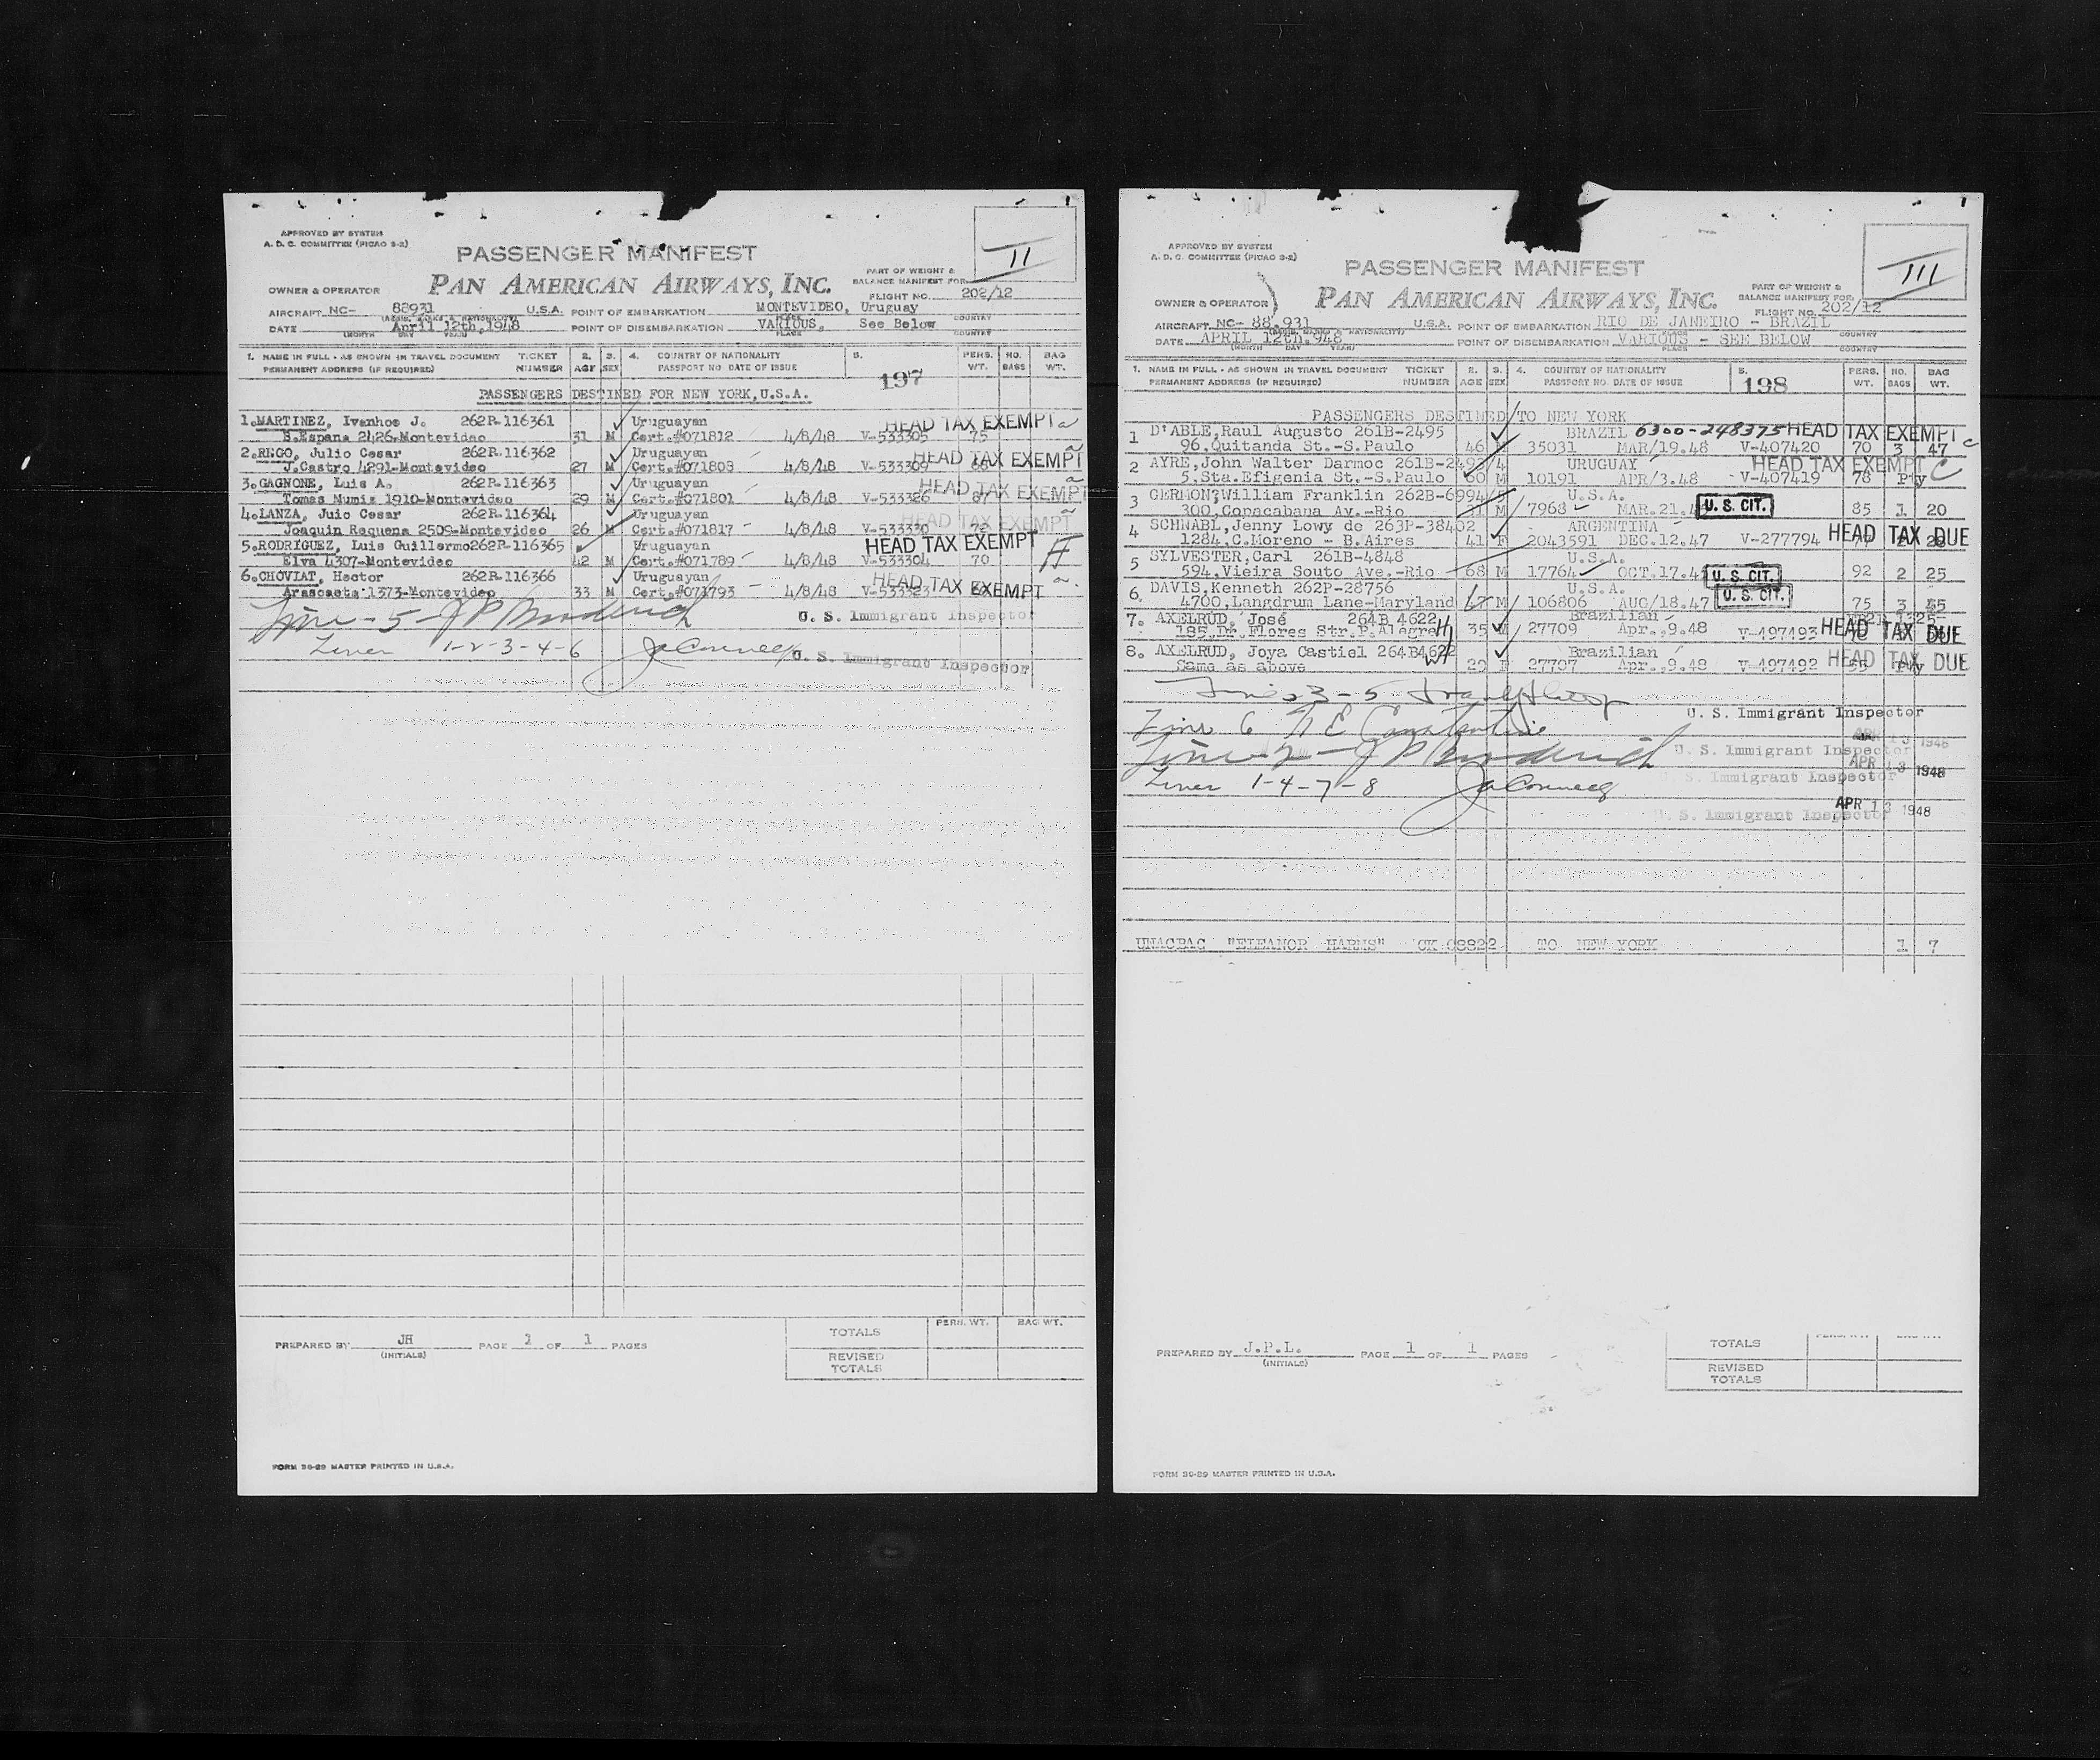 APPROVED BY SYSTEM
A. D. C. COMMITTEE (PICAO S-2)
II
PASSENGER MANIFEST
OWNER & OPERATOR PAN AMERICAN AIRWAYS, INC.
PART OF WEIGHT &
BALANCE MANIFEST FOR
FLIGHT NO. 202/12
AIRCRAFT NC- 88931 U.S.A. POINT OF EMBARKATION MONTEVIDEO, Uruguay
DATE April 12th,1948 POINT OF DISEMBARKATION VARIOUS, See Below
1. NAME IN FULL - AS SHOWN IN TRAVEL DOCUMENT TICKET 2. 3. 4. COUNTRY OF NATIONALITY 5. PERS. NO. BAG
PERMANENT ADDRESS (IF REQUIRED) NUMBER AGE SEX PASSPORT NO DATE OF ISSUE 197 WT. BAGS WT.
PASSENGERS DESTINED FOR NEW YORK,U.S.A.
1.MARTINEZ, Ivanhoe J. 262R-116361 Uruguayan HEAD TAX EXEMPT
B.Espana 2426-Montevideo 31 M Cert.#071812 4/8/48 V-533305 75
2.REGO, Julio Cesar 262R-116362 Uruguayan HEAD TAX EXEMPT
J.Castro 4291-Montevideo 27 M Cert.#071808 4/8/48 V-533309
3.GAGNONE, Luis A. 262R-116363 Uruguayan HEAD TAX EXEMPT
Tomas Numis 1910-Montevideo 29 M Cert.#071801 4/8/48 V-533326
4.LANZA, Juio Cesar 262R-116364 Uruguayan HEAD TAX EXEMPT
Joaquin Requena 2509-Montevideo 26 M Cert.#071817 4/8/48 V-533330
5.RODRIGUEZ, Luis Guillermo262R-116365 Uruguayan HEAD TAX EXEMPT
Elva 4307-Montevideo 42 M Cert.#071789 4/8/48 V-533304 70
6.CHOVIAT, Hector 262R-116366 Uruguayan HEAD TAX EXEMPT
Arascaeta 1373-Montevideo 33 M Cert.#071793 4/8/48 V-533323
Line - 5 - J P Broderick U. S. Immigrant Inspector
Lines 1-2-3-4-6 U. S. Immigrant Inspector
PREPARED BY JH PAGE 1 OF 1 PAGES
(INITIALS)
PERS. WT. BAG WT.
TOTALS
REVISED
TOTALS
FORM 30-29 MASTER PRINTED IN U.S.A.
APPROVED BY SYSTEM
A. D. C. COMMITTEE (PICAO S-2)
III
PASSENGER MANIFEST
OWNER & OPERATOR PAN AMERICAN AIRWAYS, INC.
PART OF WEIGHT &
BALANCE MANIFEST FOR
FLIGHT NO. 202/12
AIRCRAFT NC- 88,931 U.S.A. POINT OF EMBARKATION RIO DE JANEIRO - BRAZIL
DATE APRIL 12th.948 POINT OF DISEMBARKATION VARIOUS - SEE BELOW
1. NAME IN FULL - AS SHOWN IN TRAVEL DOCUMENT TICKET 2. 3. 4. COUNTRY OF NATIONALITY 5. PERS. NO. BAG
PERMANENT ADDRESS (IF REQUIRED) NUMBER AGE SEX PASSPORT NO. DATE OF ISSUE 198 WT. BAGS WT.
PASSENGERS DESTINED TO NEW YORK
1 D'ABLE,Raul Augusto 261B-2495 BRAZIL 6300-248375 HEAD TAX EXEMPT
96,Quitanda St.-S.Paulo 46 M 35031 MAR/19.48 V-407420 70 3 47
2 AYRE,John Walter Darmoc 261B-2493/4 URUGUAY HEAD TAX EXEMPT C
5,Sta.Efigenia St.-S.Paulo 60 M 10191 APR/3.48 V-407419 78 Pty
3 GERMON,William Franklin 262B-6994/5 U.S.A.
300,Copacabana Av.-Rio 31 M 7968 MAR.21.4 U. S. CIT. 85 1 20
4 SCHNABL,Jenny Lowy de 263P-38402 ARGENTINA
1284,C.Moreno - B.Aires 41 F 2043591 DEC.12.47 V-277794 HEAD TAX DUE
5 SYLVESTER,Carl 261B-4848 U.S.A.
594,Vieira Souto Ave.-Rio 68 M 17764 OCT.17.4 U. S. CIT. 92 2 25
6. DAVIS,Kenneth 262P-28756 U.S.A. U. S. CIT.
4700,Langdrum Lane-Maryland 47 M 106806 AUG/18.47 75 3
7. AXELRUD, José 264B 4622 Brazilian
185,Dr.Flores Str.P.Alegre 35 M 27709 Apr.,9.48 V-497493 HEAD TAX DUE
8. AXELRUD, Joya Castiel 264B4622 Brazilian
Same as above 29 F 27707 Apr.,9.48 V-497492 HEAD TAX DUE 55 Pty
Lines 3 - 5
U. S. Immigrant Inspector
Line 6
APR 13 1948
U. S. Immigrant Inspector
Line - 2 - J P Broderick
APR 13 1948
U. S. Immigrant Inspector
Lines 1-4-7-8
APR 13 1948
U. S. Immigrant Inspector
UNACBAG "ELEANOR HARMS" CK 08822 TO NEW YORK 1 7
PREPARED BY J.P.L. PAGE 1 OF 1 PAGES
(INITIALS)
TOTALS
REVISED
TOTALS
FORM 30-29 MASTER PRINTED IN U.S.A.